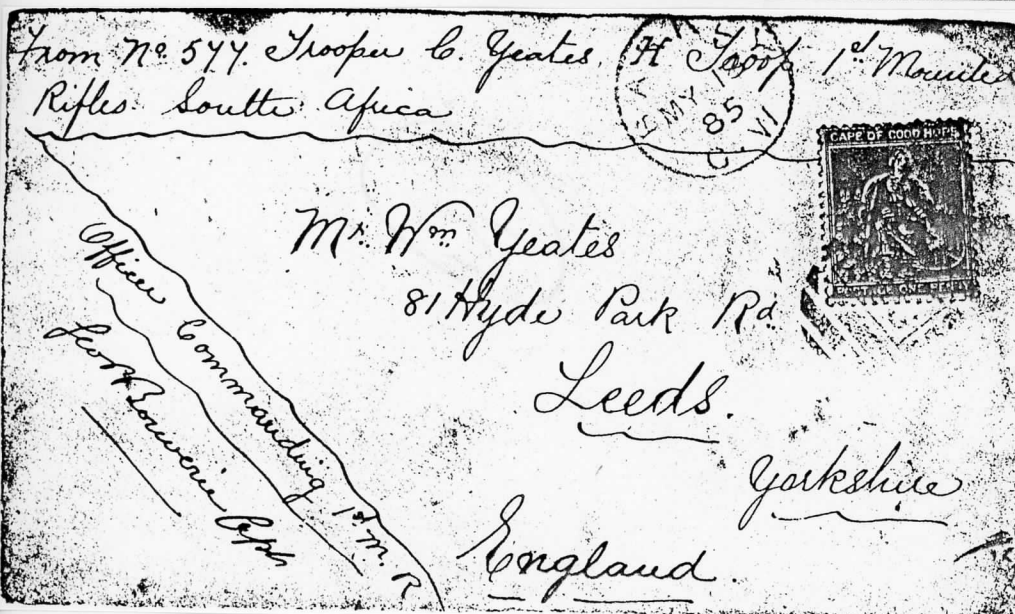 From No. 577. Trooper C. Yeates. H Troop 1st Mounted
Rifles South Africa
MY 1
85
VI
CAPE OF GOOD HOPE
ONE PENNY
Mr. Wm Yeates
81 Hyde Park Rd
Leeds.
Yorkshire
England.
Officer Commanding 1st M. R
Bowerie Capt